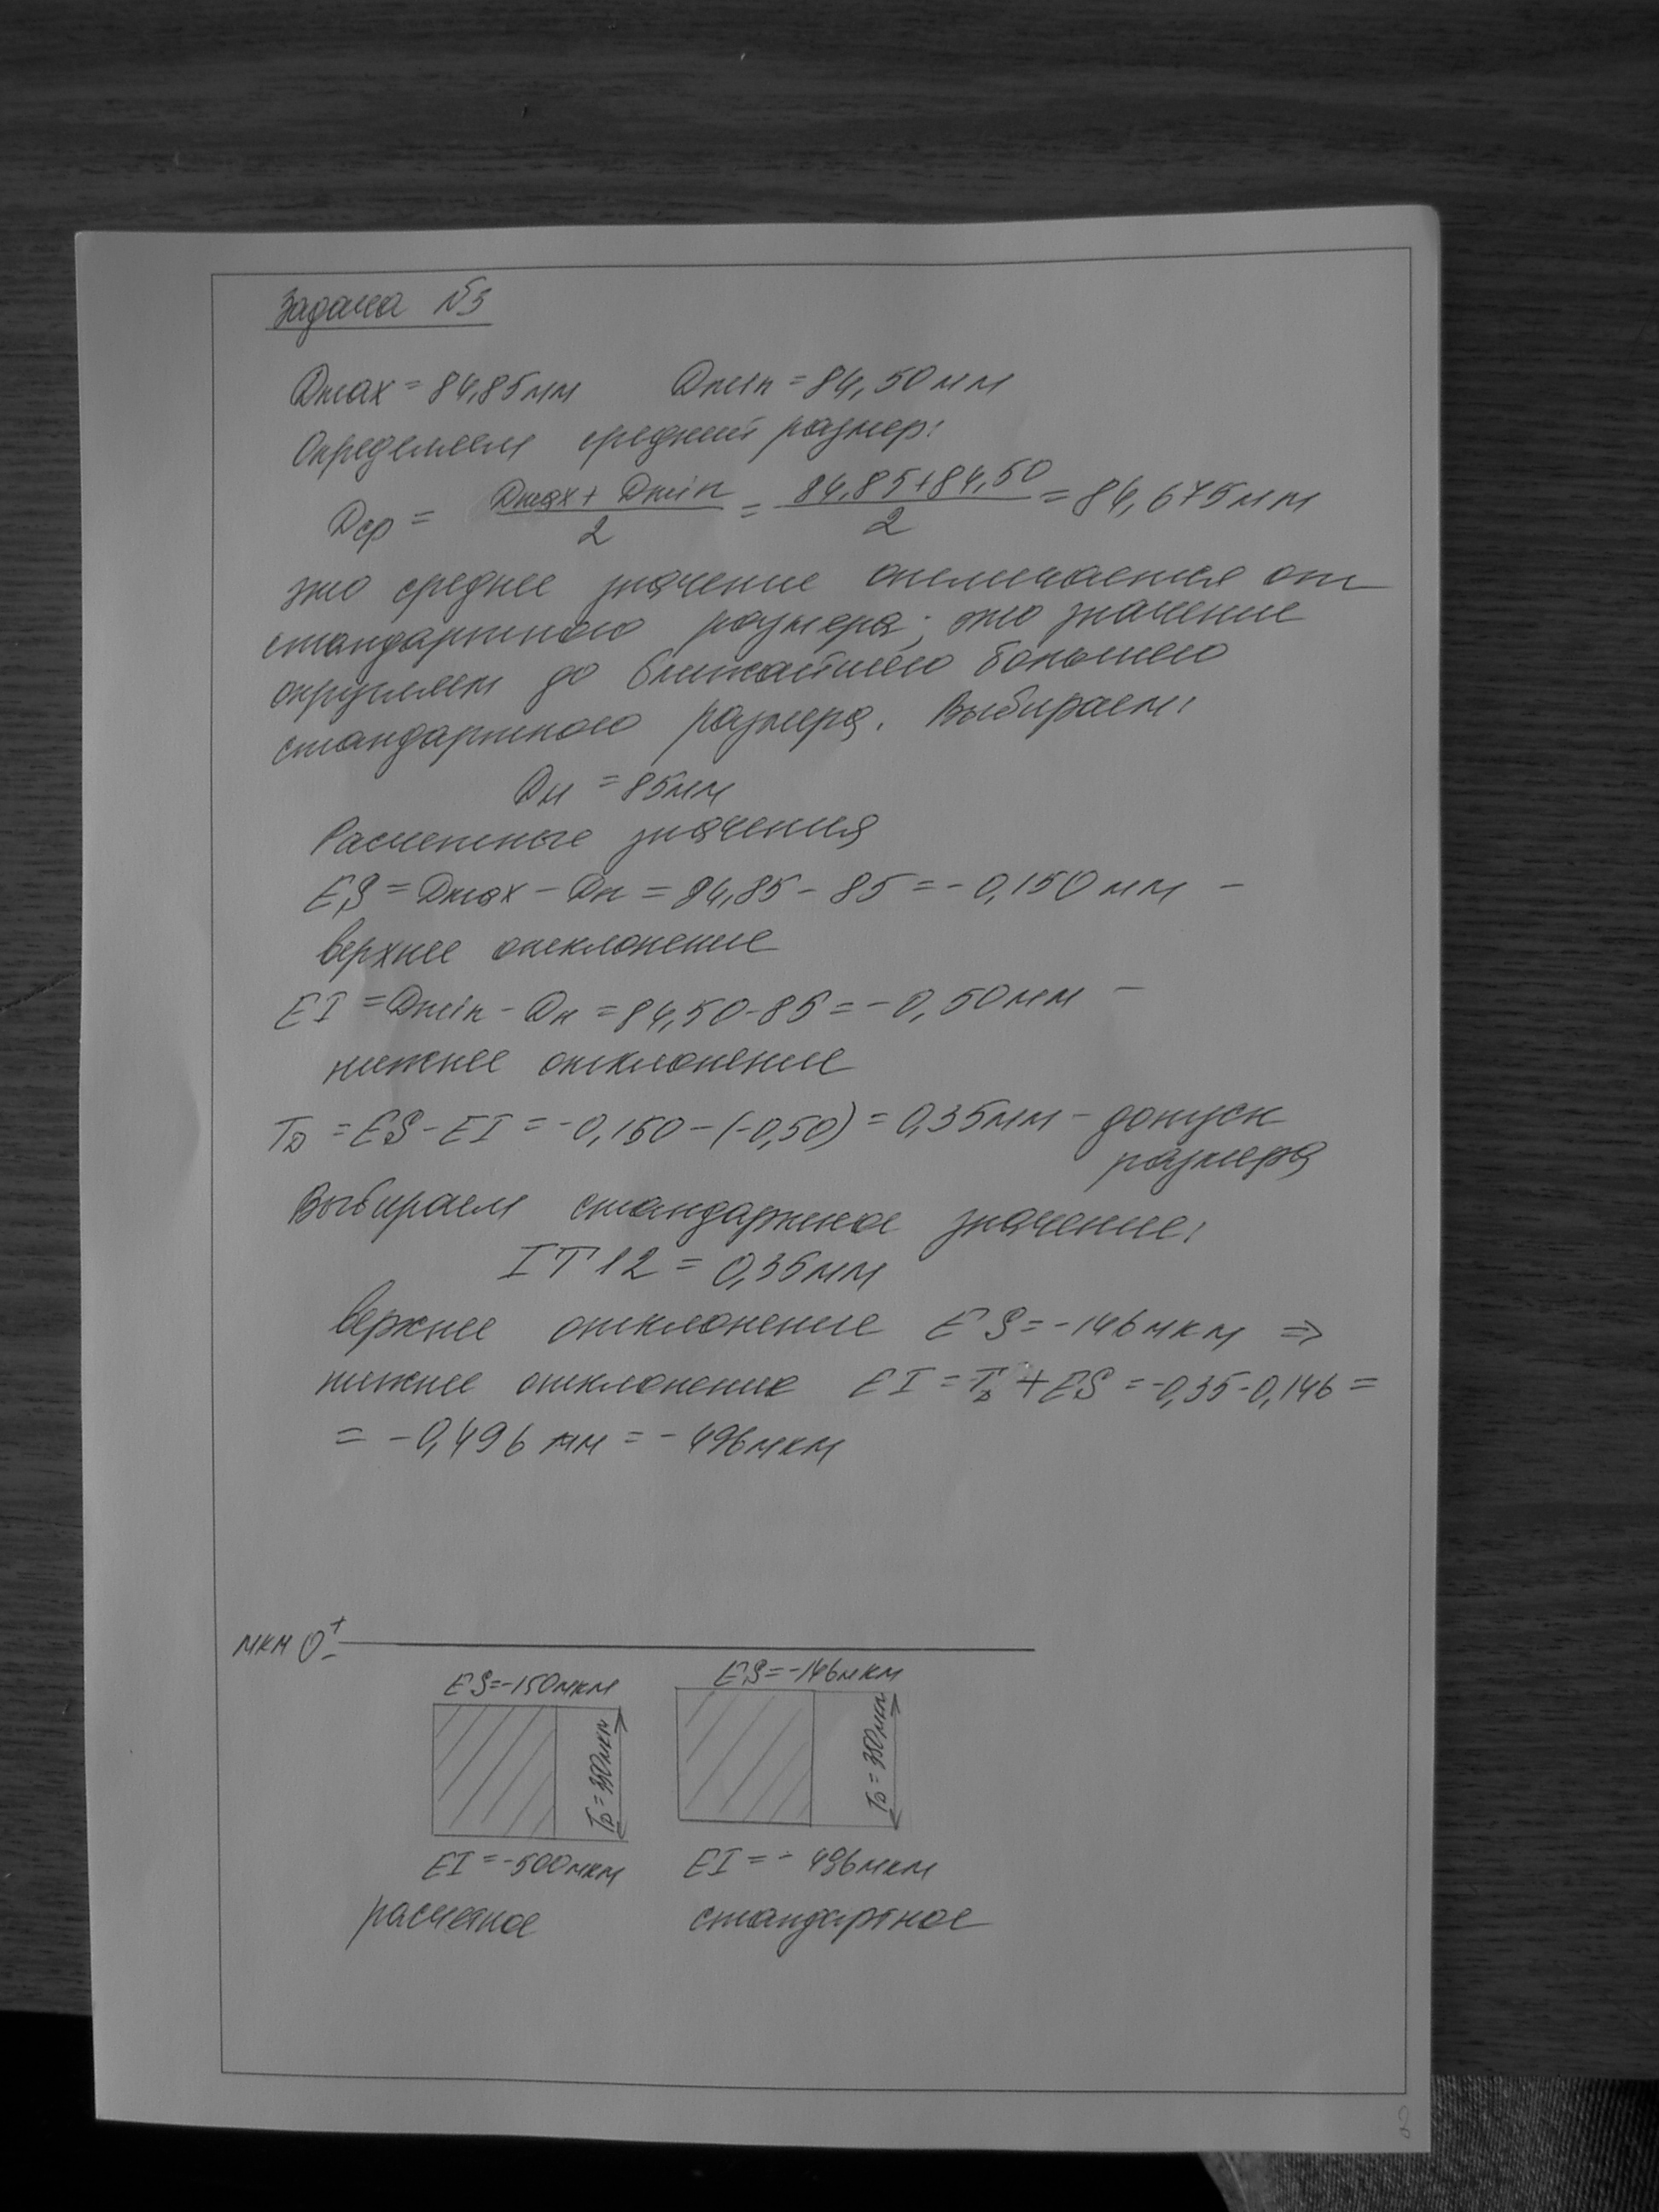 Задача №3
Dmax = 84,85мм Dmin = 84,50мм
Определяем средний размер:
Dср = (Dmax + Dmin)/2 = (84,85+84,50)/2 = 84,675мм
это среднее значение отличается от
стандартного размера; это значение
округляем до ближайшего большего
стандартного размера. Выбираем:
Dн = 85мм
Расчетные значения
ES = Dmax - Dн = 84,85 - 85 = -0,150мм -
верхнее отклонение
EI = Dmin - Dн = 84,50-85 = -0,50мм -
нижнее отклонение
TD = ES - EI = -0,150 - (-0,50) = 0,35мм - допуск
размера
Выбираем стандартное значение:
IT12 = 0,35мм
верхнее отклонение ES = -146мкм ⇒
нижнее отклонение EI = TD + ES = -0,35-0,146 =
= -0,496 мм = -496мкм
мкм 0 + -
ES=-150мкм ES=-146мкм
TD = 350мкм TD = 350мкм
EI = -500мкм EI = - 496мкм
расчетное стандартное